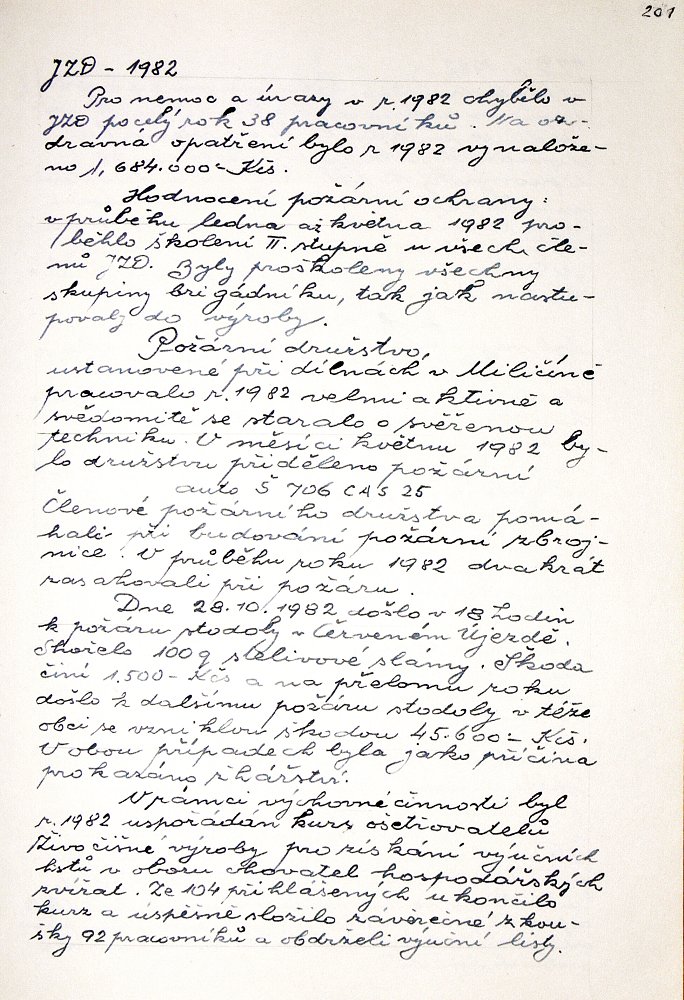 201
JZD - 1982
Pro nemoc a úrazy v r. 1982 chybělo v
JZD po celý rok 38 pracovníků. Na oz-
dravná opatření bylo r 1982 vynalože-
no 1,684.000- Kčs.
Hodnocení požární ochrany:
v průběhu ledna až května 1982 pro-
běhlo školení II. stupně u všech čle-
nů JZD. Byly proškoleny všechny
skupiny brigádníku, tak jak nastu-
povaly do výroby.
Požární družstvo,
ustanovené při dílnách v Miličíně
pracovalo r. 1982 velmi aktivně a
svědomitě se staralo o svěřenou
techniku. V měsíci květnu 1982 by-
lo družstvu přiděleno požární
auto Š 706 CAS 25
Členové požárního družstva pomá-
hali při budování požární zbroj-
nice. V průběhu roku 1982 dvakrát
zasahovali při požáru.
Dne 28.10.1982 došlo v 18 hodin
k požáru stodoly v Červeném Újezdě.
Shořelo 100 q stelivové slámy. Škoda
činí 1.500- Kčs a na přelomu roku
došlo k dalšímu požáru stodoly v téže
obci se vzniklou škodou 45.600- Kčs.
V obou případech byla jako příčina
prokazáno žhářství.
V rámci výchovné činnosti byl
r. 1982 uspořádán kurs ošetřovatelů
živočišné výroby pro získání výučních
listů v oboru chovatel hospodářských
zvířat. Ze 104 přihlášených ukončilo
kurz a úspěšně složilo závěrečné zkou-
šky 92 pracovníků a obdrželi výuční listy.